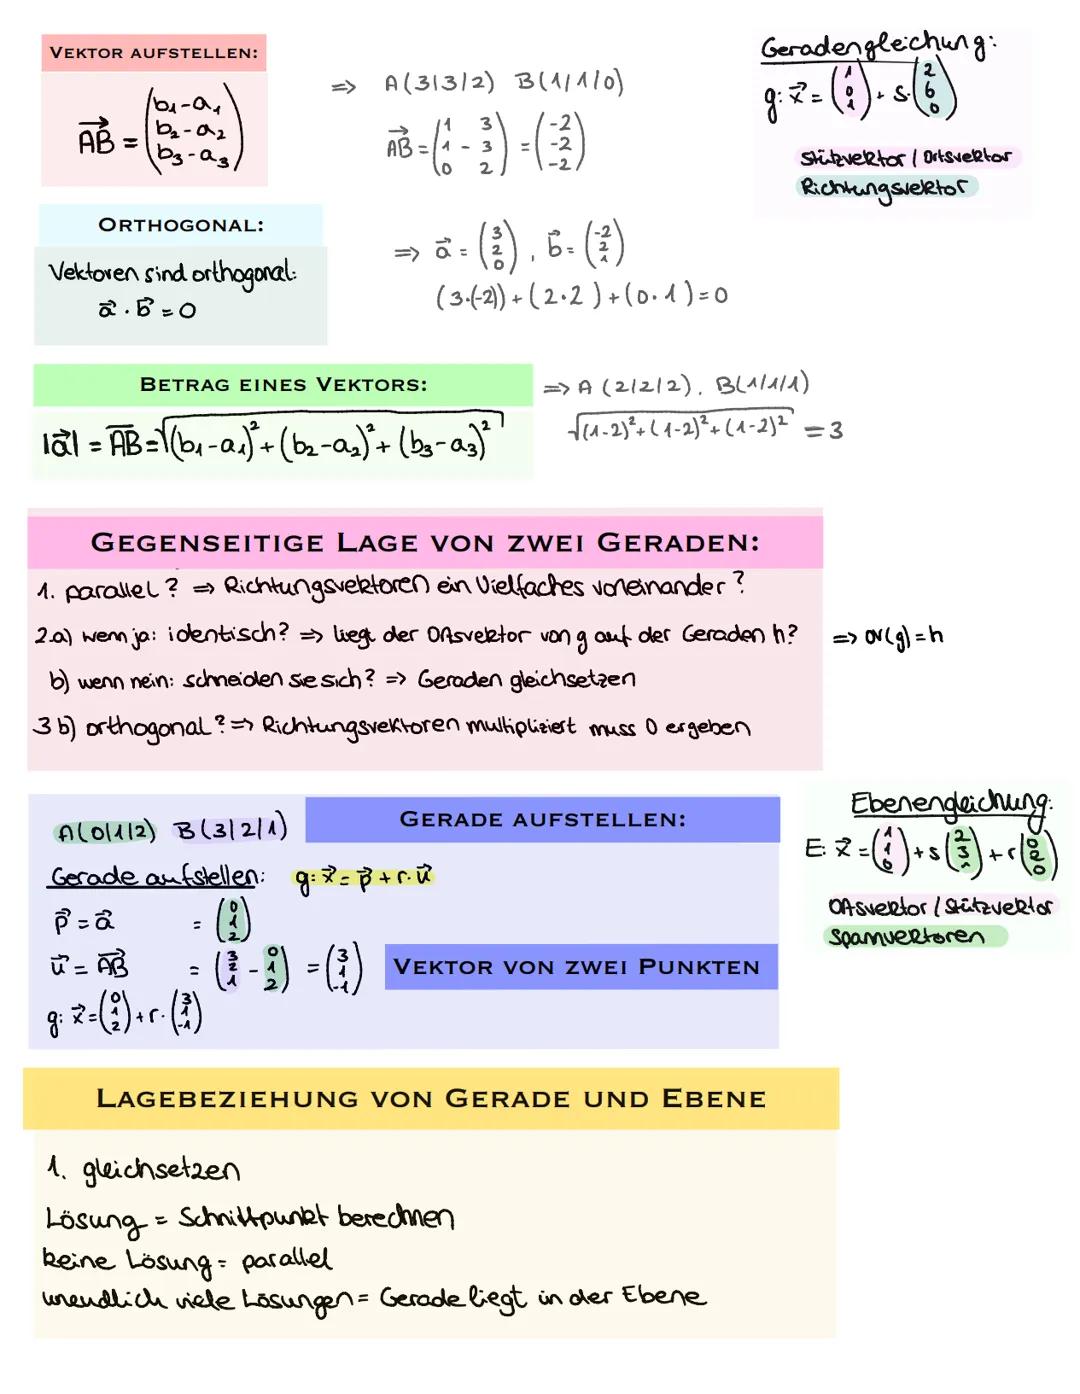 VEKTOR AUFSTELLEN:
AB = (b1-a1
b2-a2
b3-a3)
=> A(3|3|2) B(1|1|0)
AB = (1 3
1 - 3
0 2) = (-2
-2
-2)
Geradengleichung:
g: x = (1
0
1) + s· (2
6
0)
Stützvektor / Ortsvektor
Richtungsvektor
ORTHOGONAL:
Vektoren sind orthogonal:
a · b = 0
=> a = (3
2
0), b = (-2
2
1)
(3·(-2)) + (2·2) + (0·1) = 0
BETRAG EINES VEKTORS:
|a| = AB = √(b1-a1)² + (b2-a2)² + (b3-a3)²
=> A (2|2|2), B(1|1|1)
√(1-2)² + (1-2)² + (1-2)² = 3
GEGENSEITIGE LAGE VON ZWEI GERADEN:
1. parallel? => Richtungsvektoren ein Vielfaches voneinander?
2.a) wenn ja: identisch? => liegt der Ortsvektor von g auf der Geraden h? => ov(g) = h
b) wenn nein: schneiden sie sich? => Geraden gleichsetzen
3 b) orthogonal? => Richtungsvektoren multipliziert muss 0 ergeben
A(0|1|2) B(3|2|1)
GERADE AUFSTELLEN:
Gerade aufstellen: g: x = p + r · u
p = a = (0
1
2)
u = AB = (3
2
1 - 0
1
2) = (3
1
-1)
VEKTOR VON ZWEI PUNKTEN
g: x = (0
1
2) + r · (3
1
-1)
Ebenengleichung:
E: x = (1
1
0) + s (2
3) + r (0
2
0)
Ortsvektor / Stützvektor
Spannvektoren
LAGEBEZIEHUNG VON GERADE UND EBENE
1. gleichsetzen
Lösung = Schnittpunkt berechnen
keine Lösung = parallel
unendlich viele Lösungen = Gerade liegt in der Ebene